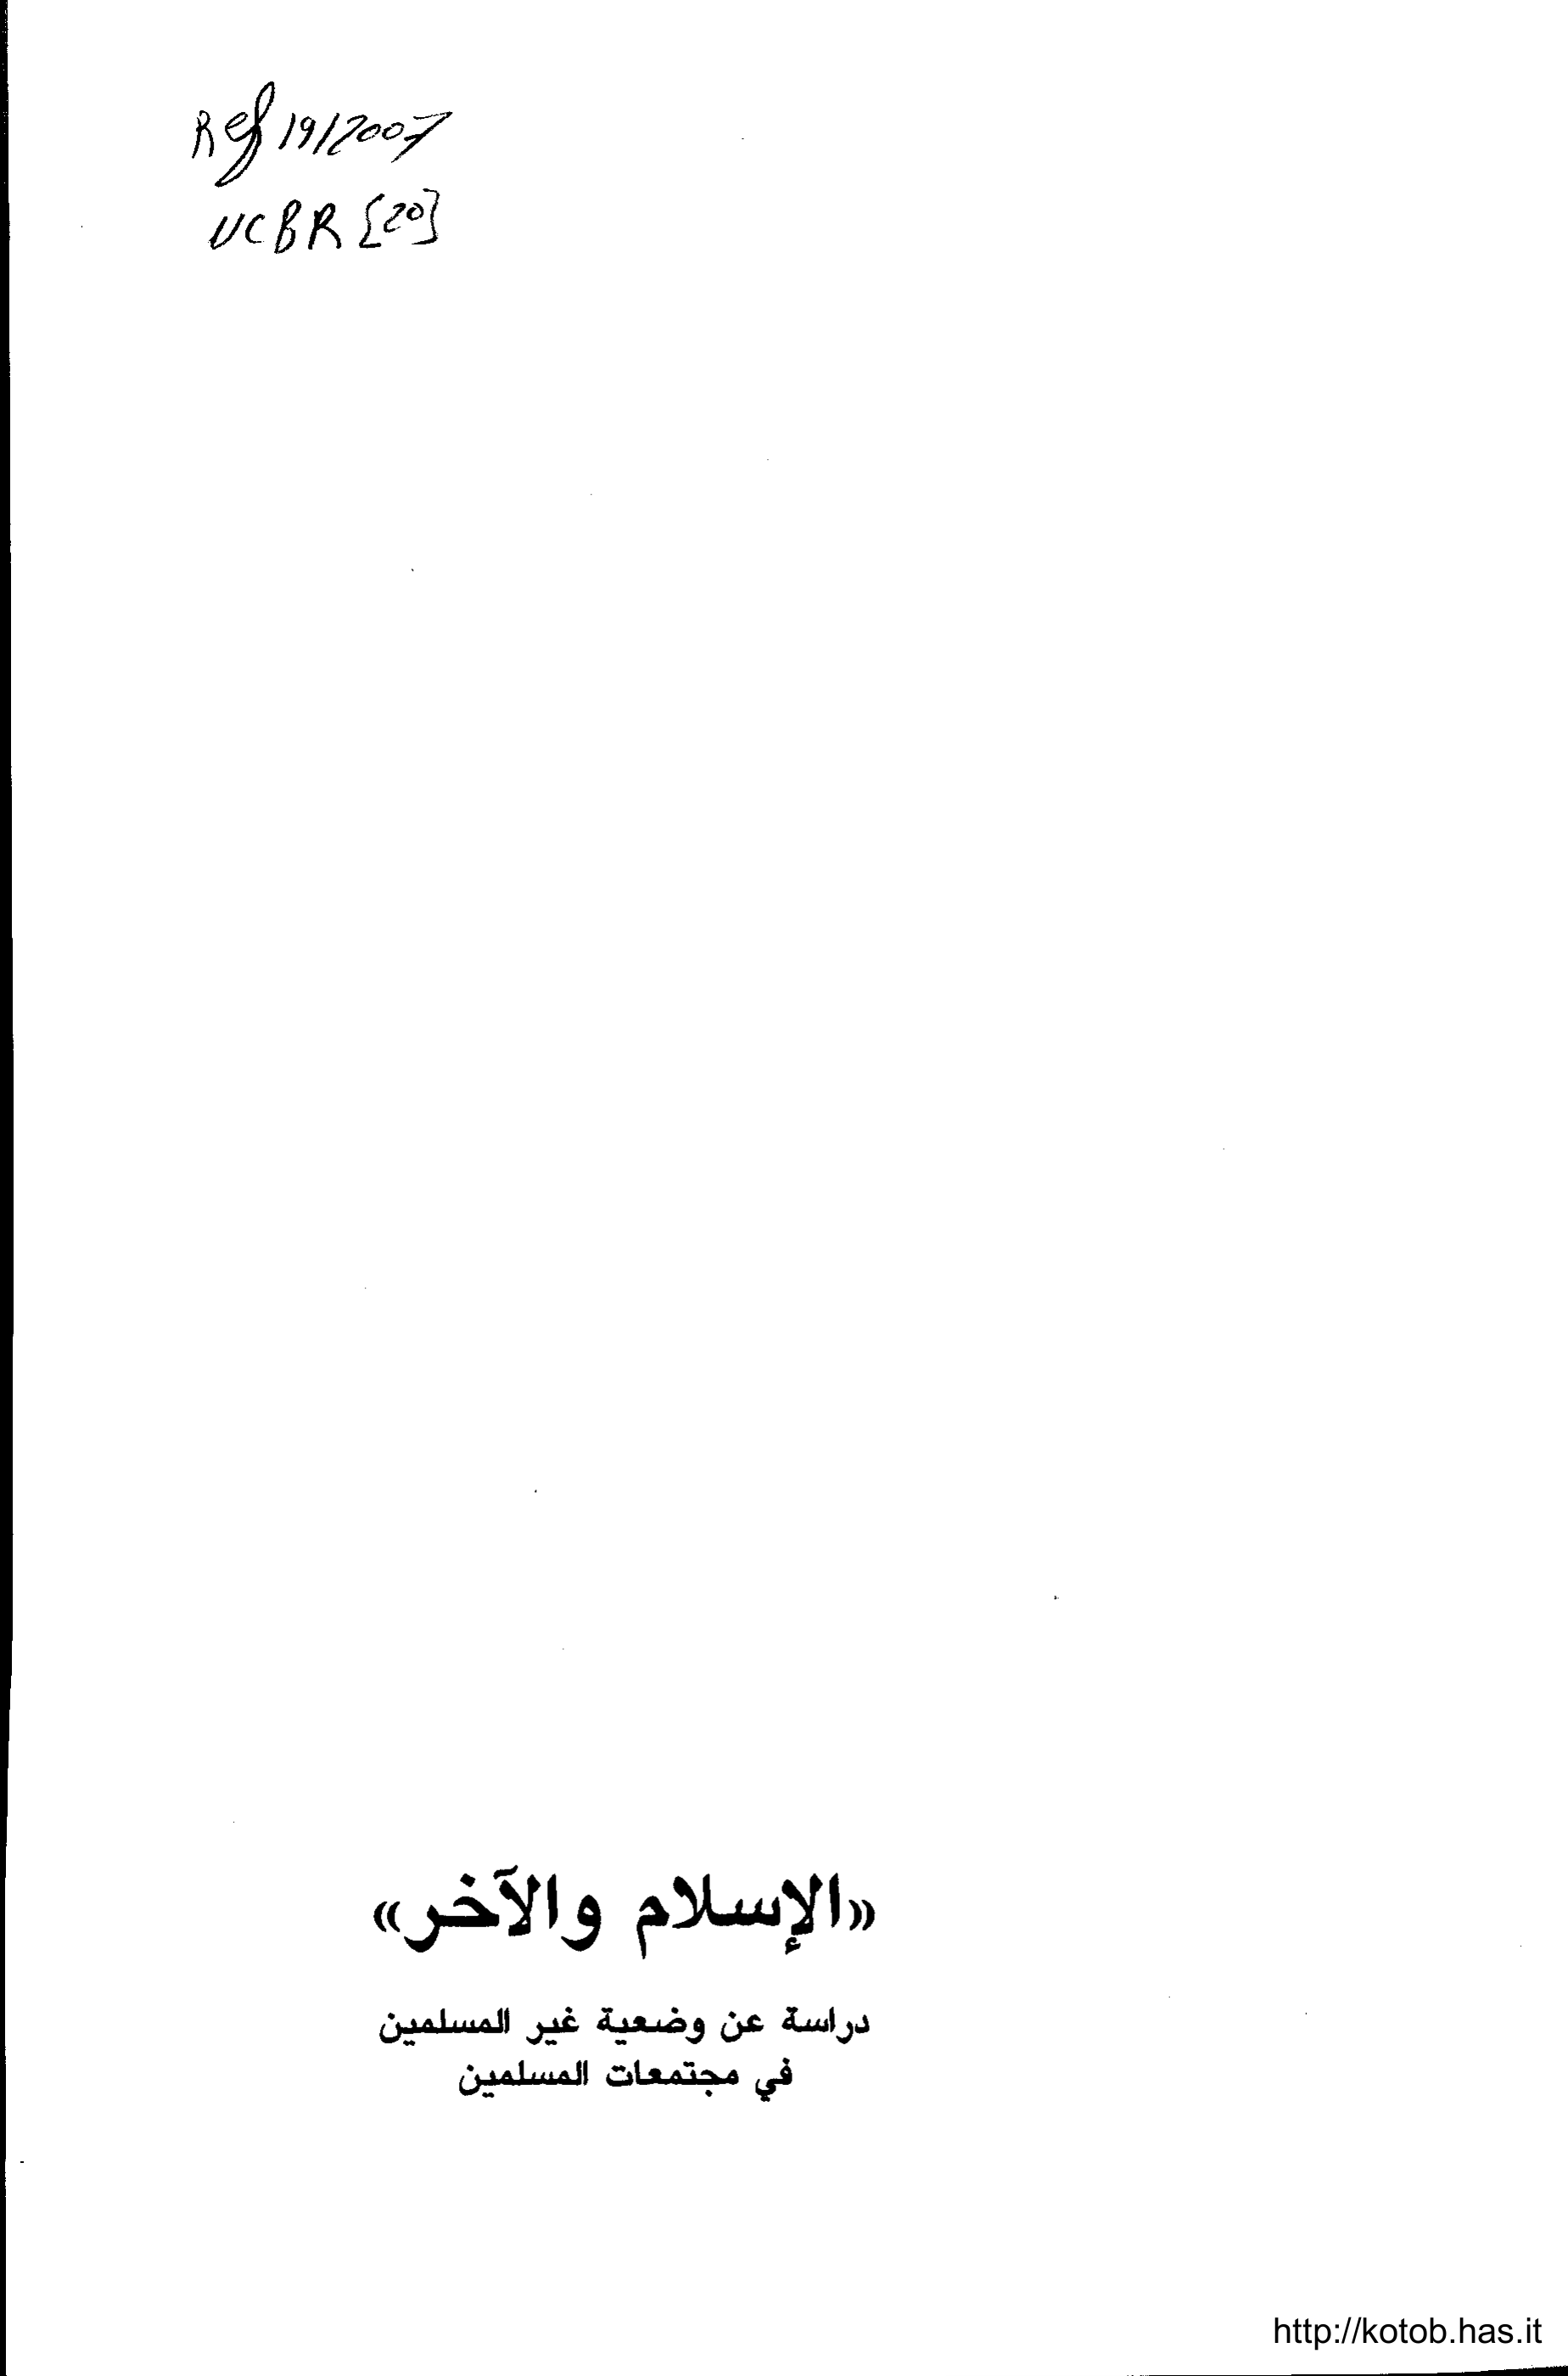 Ref 19/2007
UCBR [20]
«الإسلام والآخر»
دراسة عن وضعية غير المسلمين
في مجتمعات المسلمين
http://kotob.has.it